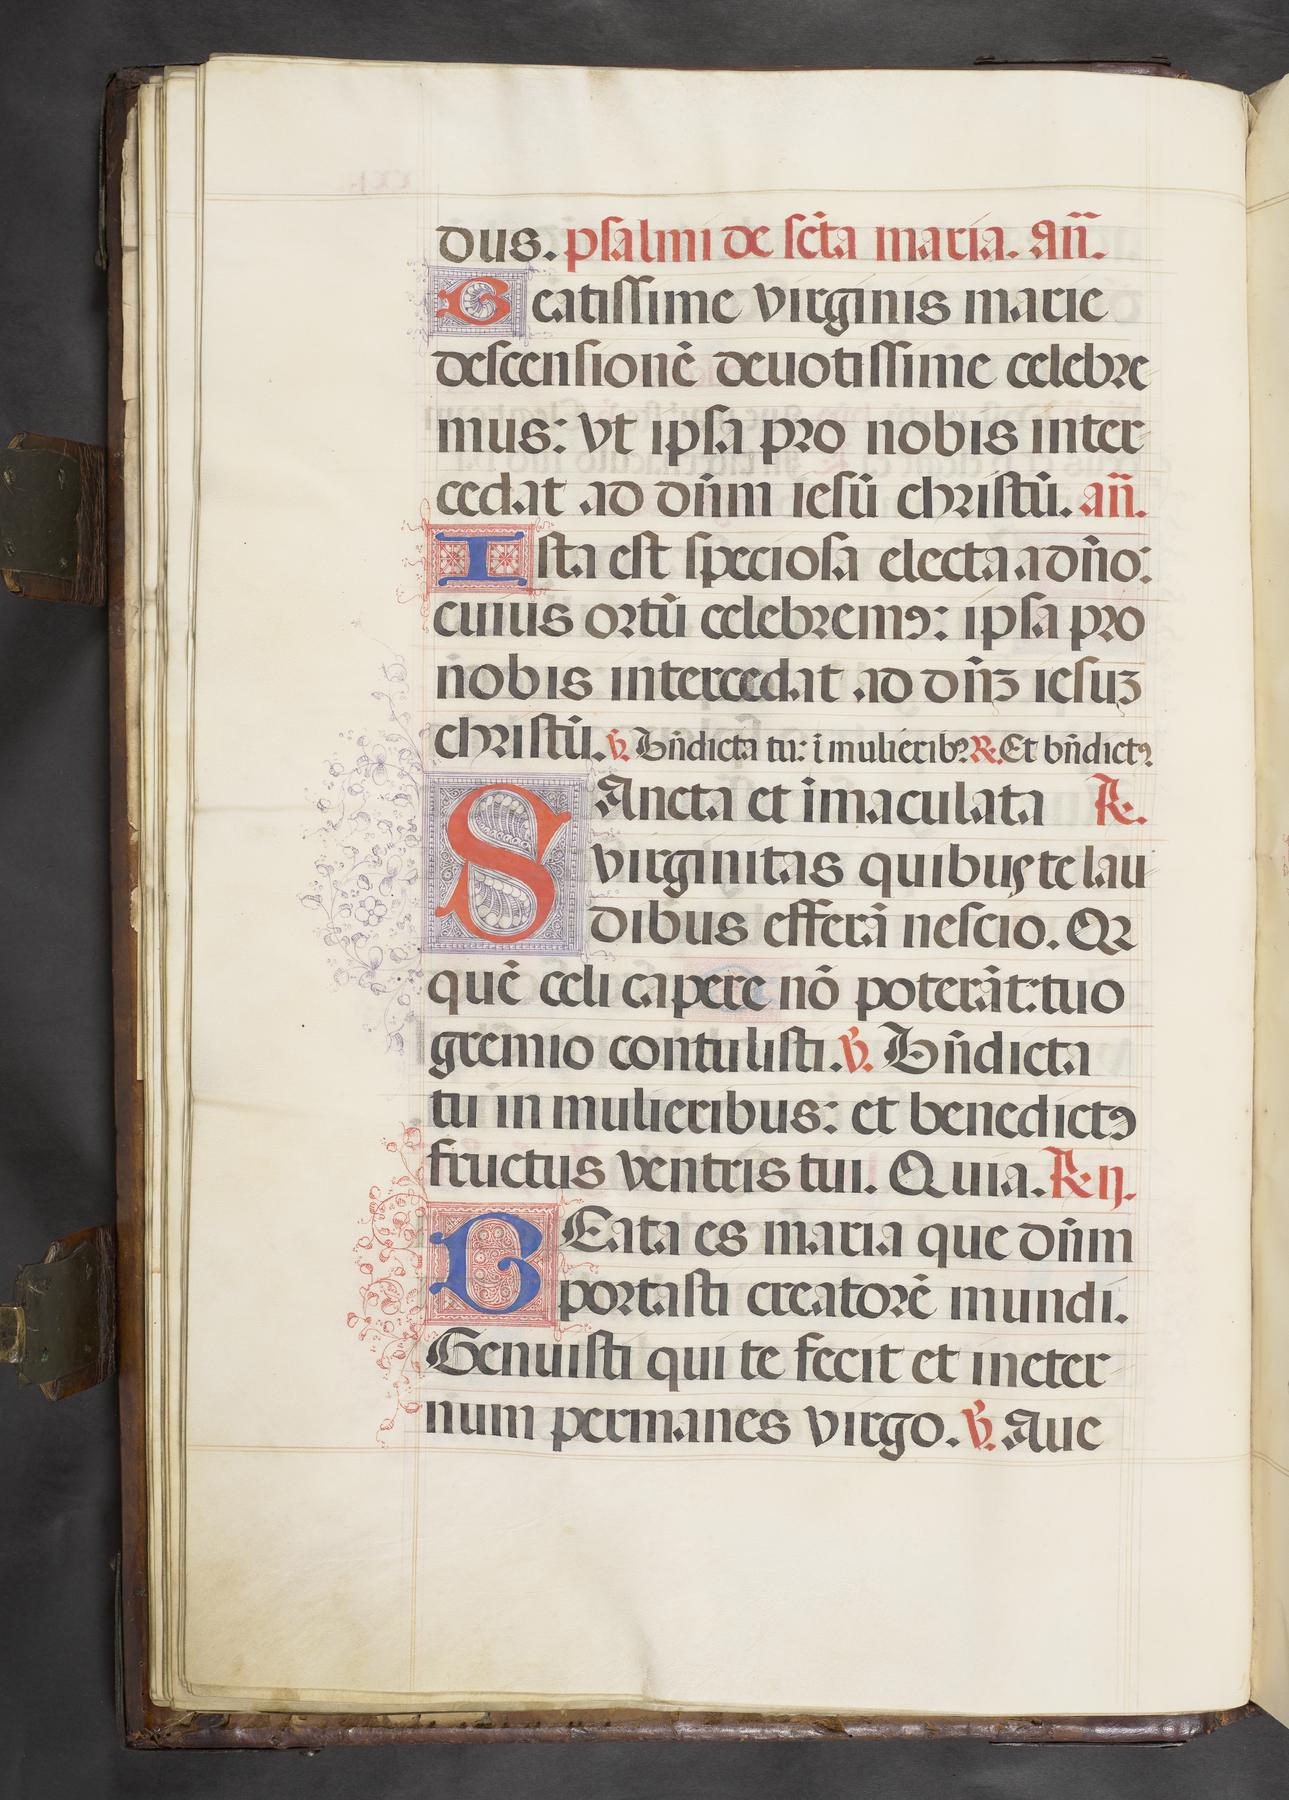 dus. psalmi de sc̃ta maria. añ.
Beatissime virginis marie
descensionẽ deuotissime celebre
mus: vt ipsa pro nobis inter
cedat ad dñm iesũ christũ. añ.
Ista est speciosa electa a dño:
cuius ortũ celebremꝰ: ipsa pro
nobis intercedat ad dñꝫ iesuꝫ
christũ. ꝟ. Bñdicta tu: ĩ mulieribꝰ ꝶ. Et bñdictꝰ
SAncta et ĩmaculata ꝶ.
virginitas quibus te lau
dibus efferã nescio. Qꝛ
quẽ celi capere nõ poterãt: tuo
gremio contulisti. ꝟ. Bñdicta
tu in mulieribus: et benedictꝰ
fructus ventris tui. Quia. ꝶ ij.
BEata es maria que dñm
portasti creatorẽ mundi.
Genuisti qui te fecit et ineter
num permanes virgo. ꝟ. Aue